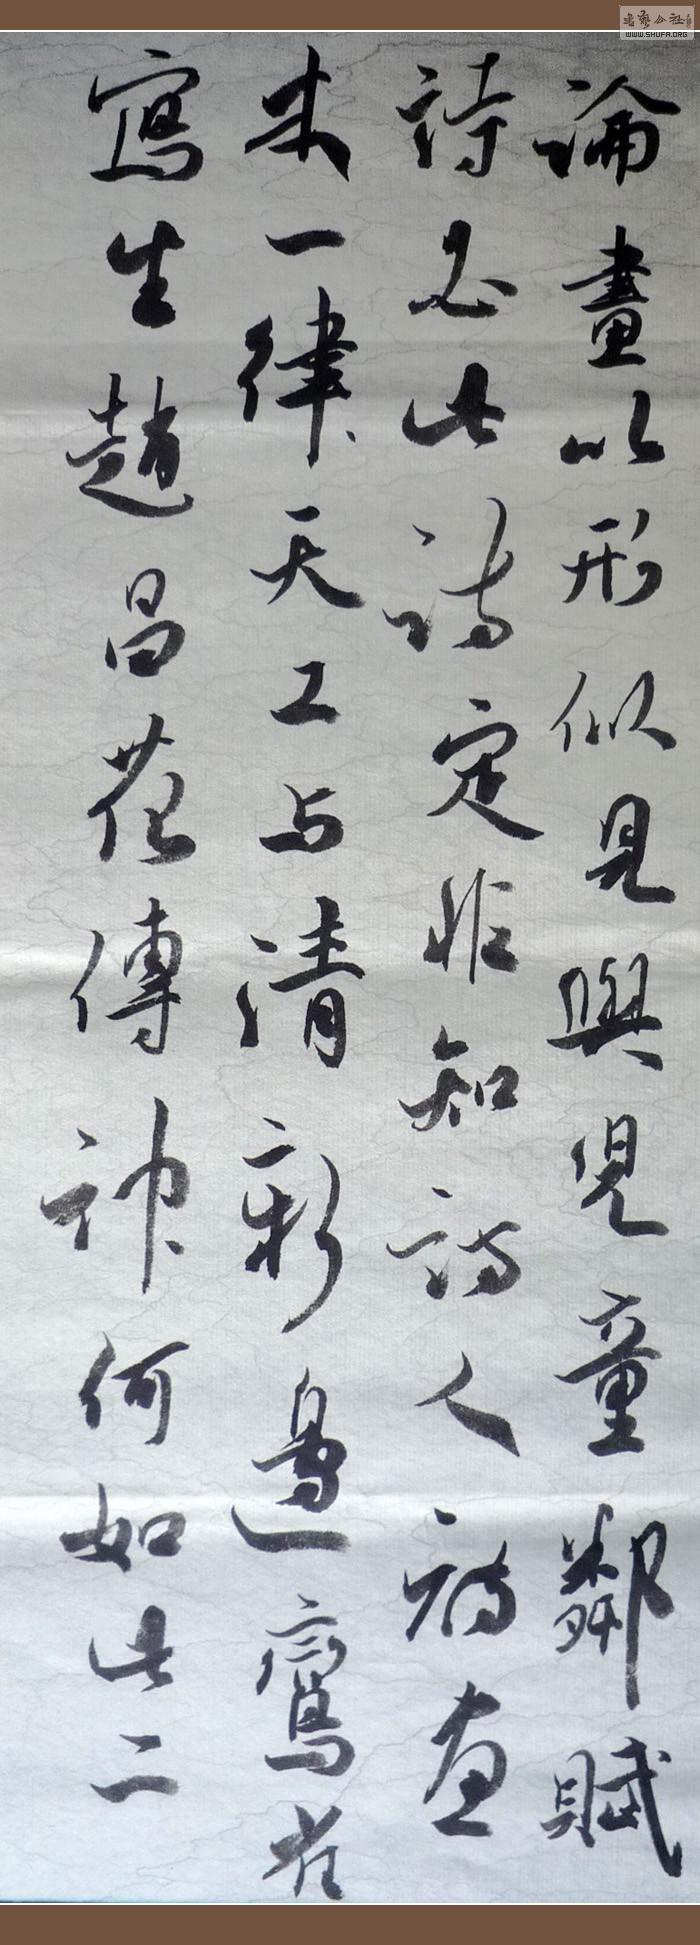 論畫以形似見與兒童鄰賦
詩必此詩定非知詩人詩畫
本一律天工与清新邊鸞雀
寫生趙昌花傳神何如此二
書藝公社
WWW.SHUFA.ORG